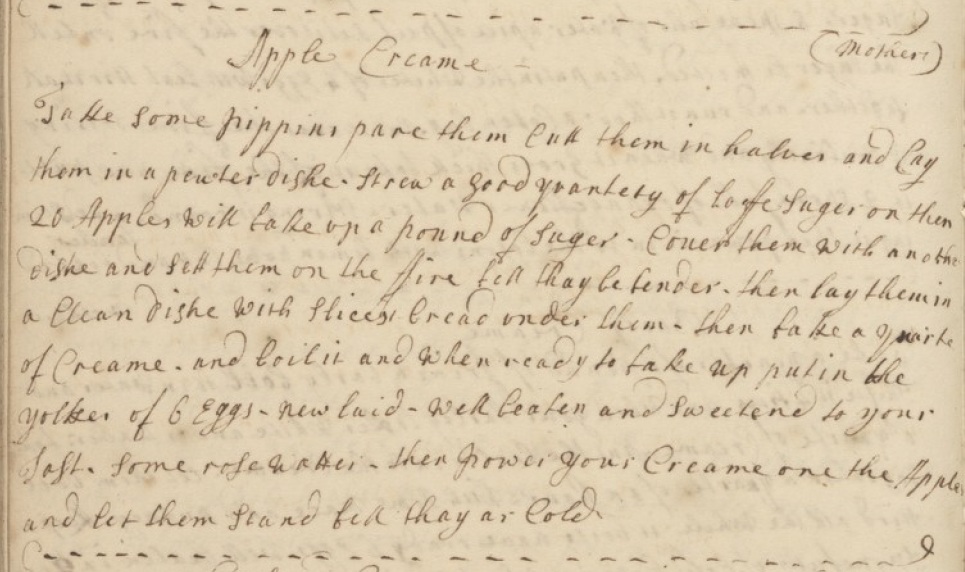 Apple Creame (Mothers)
Take some pippins pare them Cutt them in halves and Lay
them in a pewter dishe. strew a good quantety of lofe Suger on them
20 Apples will take up a pound of Suger. Cover them with anothe
dishe and sett them on the ffire till thay be tender. then lay them in
a Clean dishe with sliced bread under them. then take a quarte
of Creame. and boil it and when ready to take up put in the
yolkes of 6 Eggs. new laid. well beaten and sweetend to your
tast. some rose watter. then power your Creame one the Apples
and let them stand till thay ar Cold.